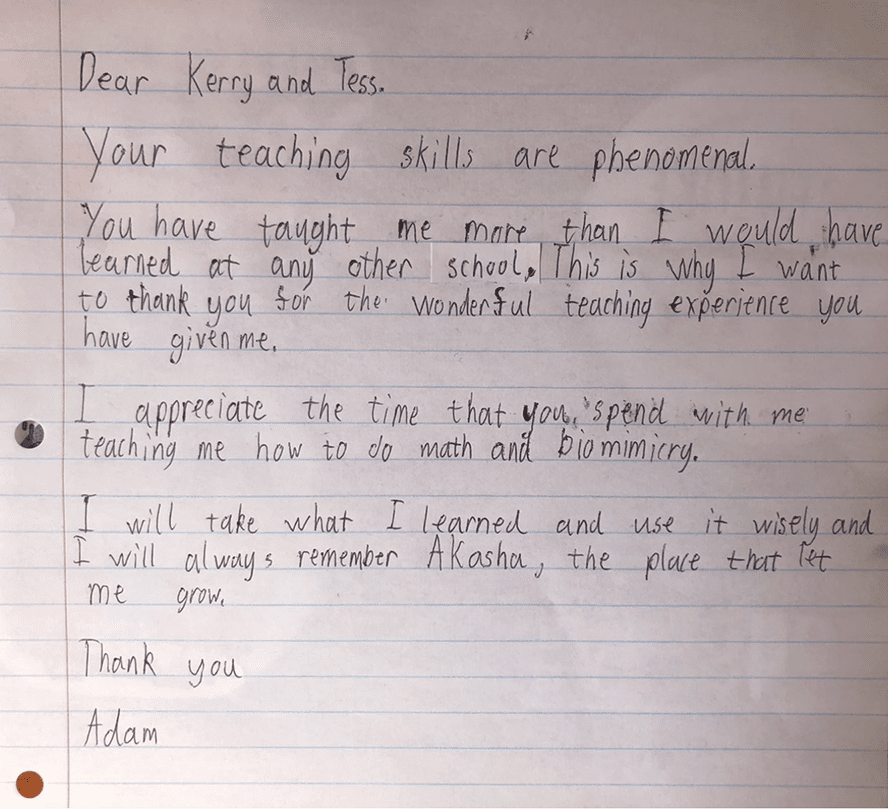 Dear Kerry and Tess.
Your teaching skills are phenomenal.
You have taught me more than I would have
learned at any other school. This is why I want
to thank you for the wonderful teaching experience you
have given me.
I appreciate the time that you spend with me
teaching me how to do math and biomimicry.
I will take what I learned and use it wisely and
I will always remember Akasha, the place that let
me grow.
Thank you
Adam